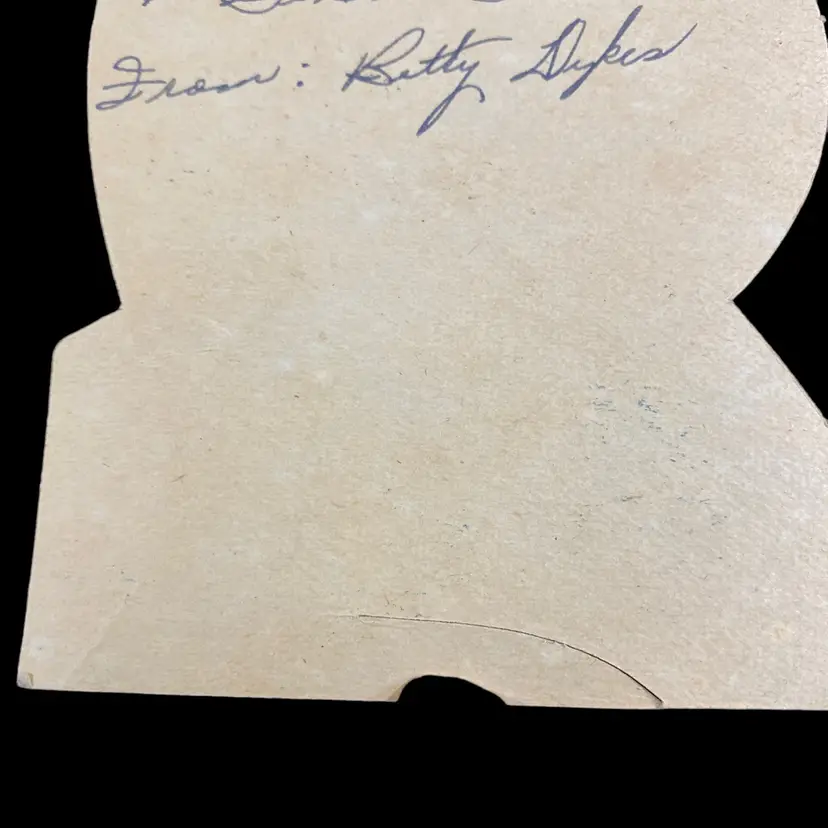 From: Betty Dykes